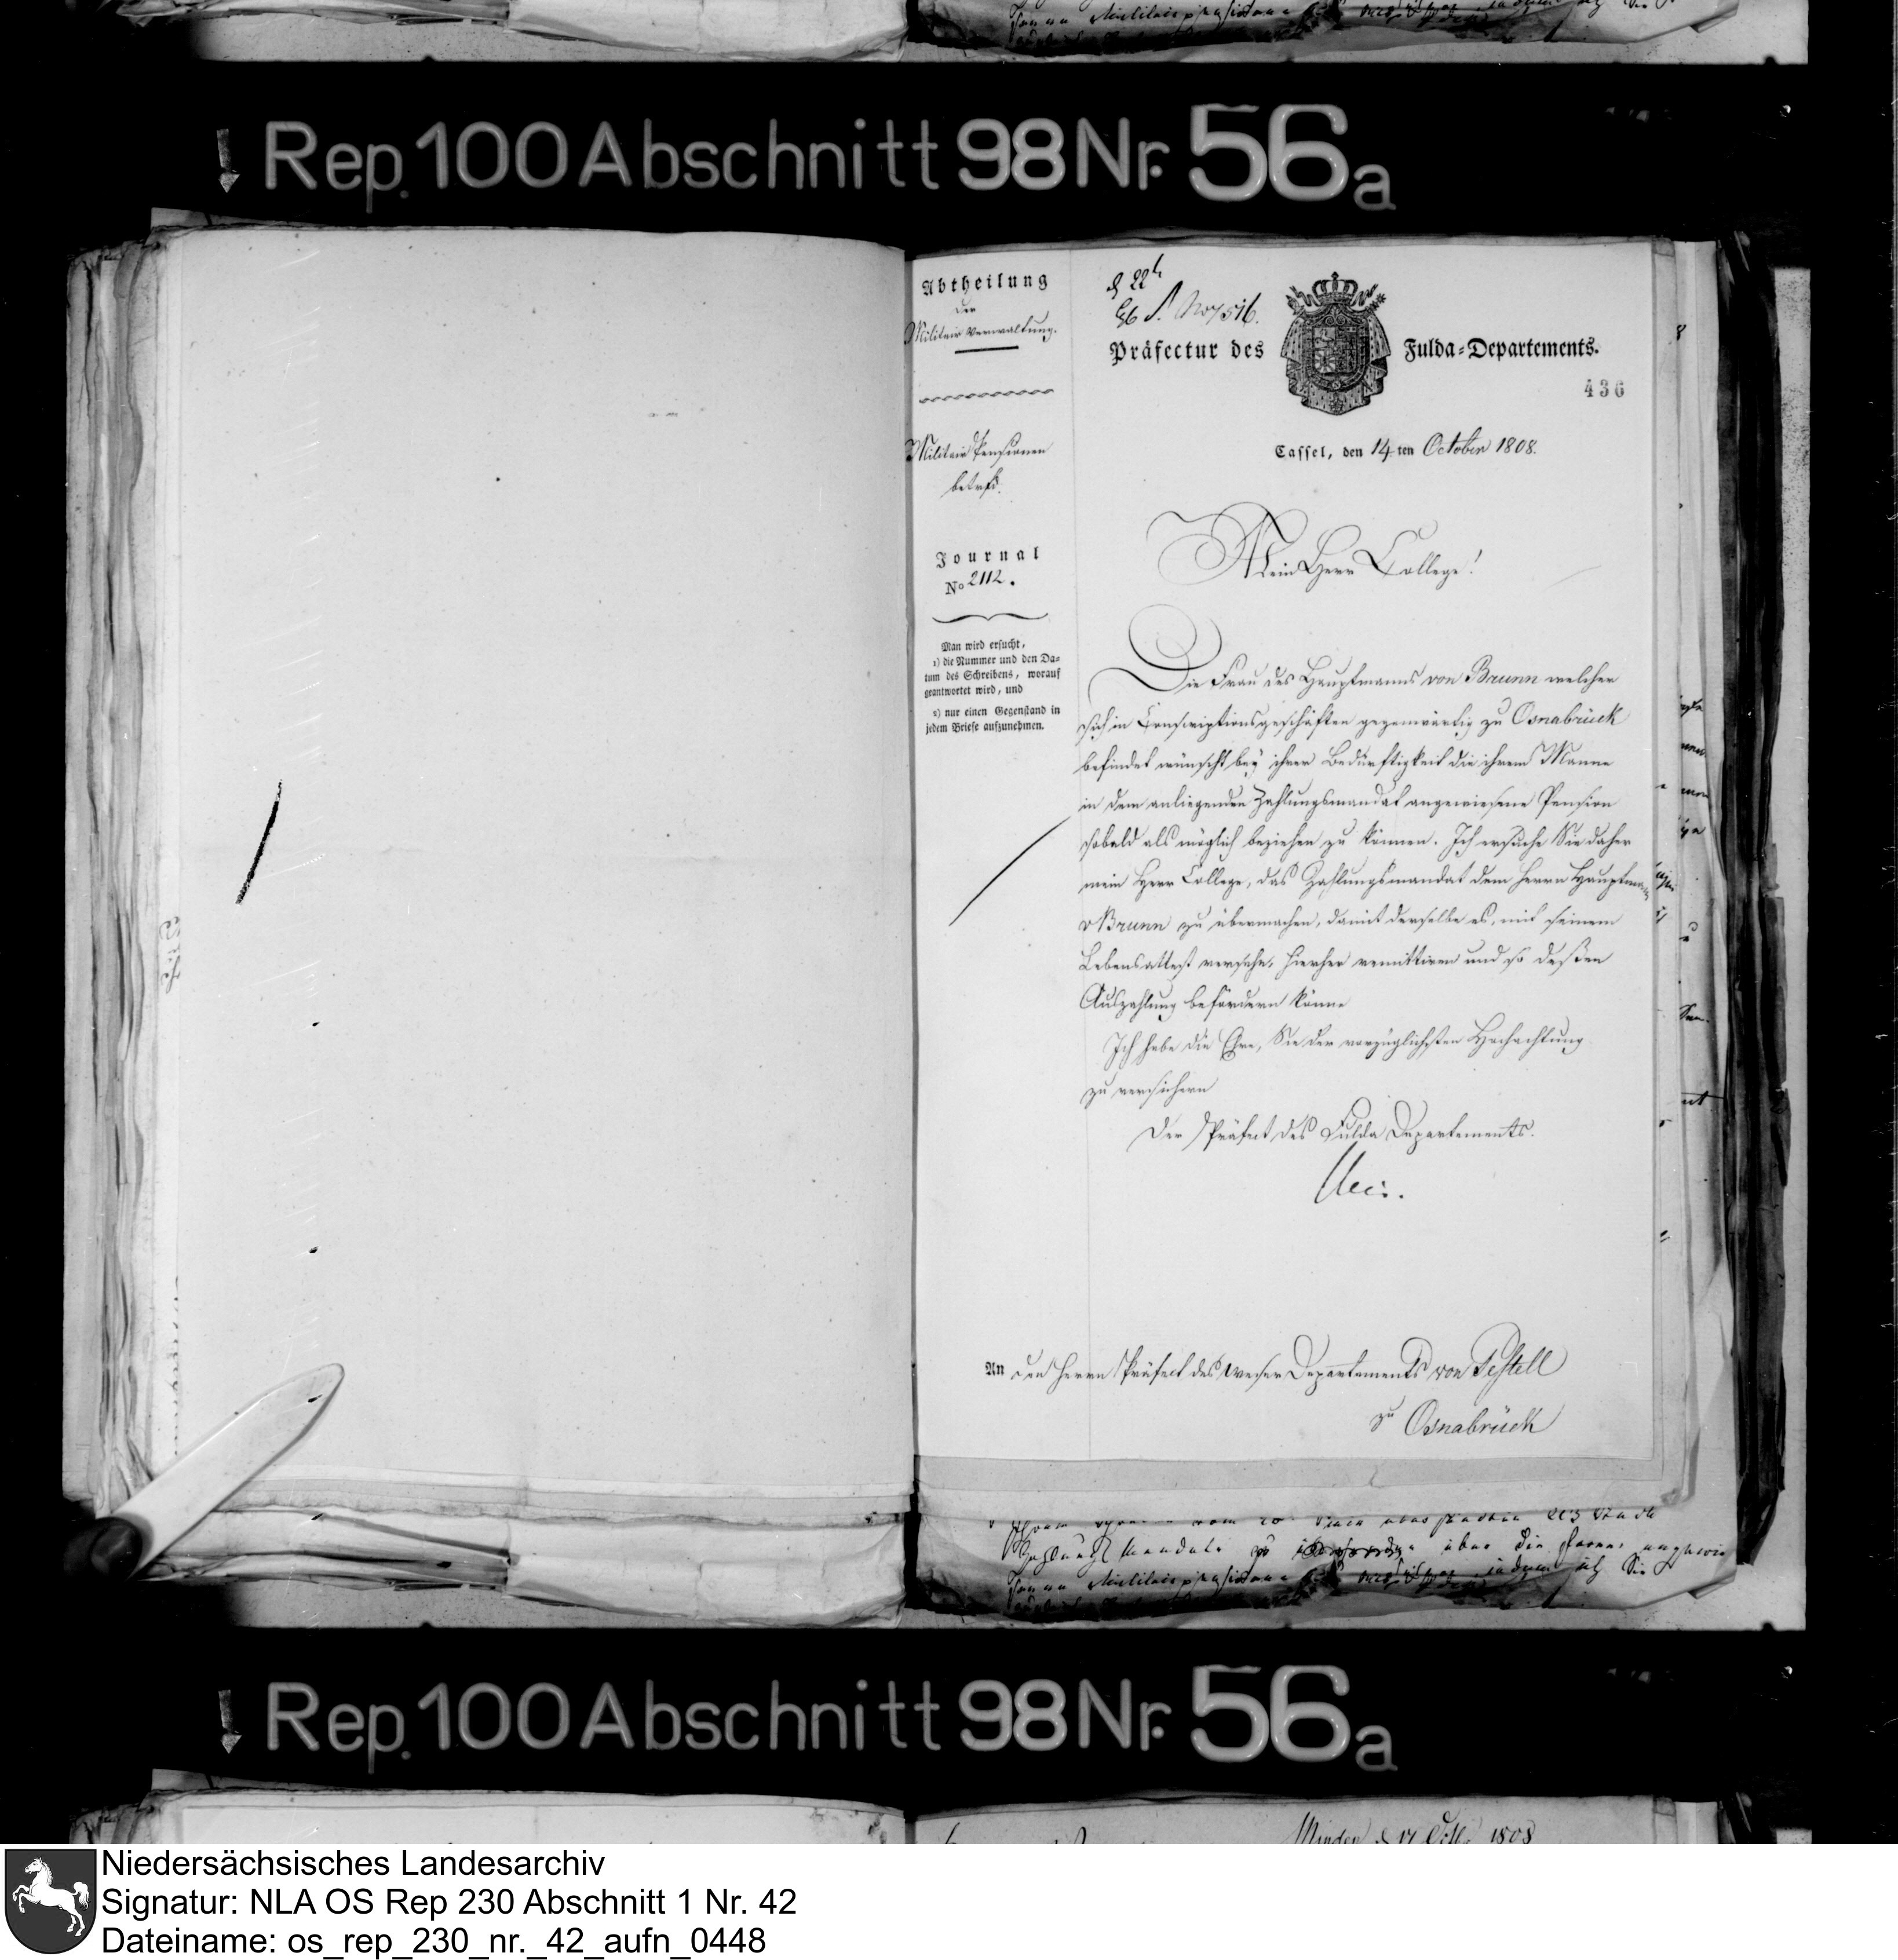 Rep. 100 Abschnitt 98 Nr. 56a
Abtheilung
der
Militair Verwaltung.
Militair Pensionen
betrfd.
Journal
No 2112.
Man wird ersucht,
1) die Nummer und den Da-
tum des Schreibens, worauf
geantwortet wird, und
2) nur einen Gegenstand in
jedem Briefe aufzunehmen.
516.
Präfectur des Fulda-Departements.
436
Cassel, den 14ten October 1808.
Mein Herr College!
Die Frau des Hauptmanns von Brunn welcher
sich in Conscriptionsgeschäften gegenwärtig zu Osnabrück
befindet wünscht bey ihrer Bedürftigkeit die ihrem Manne
in dem anliegenden Zahlungsmandat angewiesene Pension
sobald als möglich beziehen zu können. Ich ersuche Sie daher
mein Herr College, das Zahlungsmandat dem Herrn Hauptmann
v Brunn zu übermachen, damit derselbe es, mit seinem
Lebensattest versehn, hierher remittiren und so deßen
Auszahlung befördern könne
Ich habe die Ehre, Sie der vorzüglichsten Hochachtung
zu versichern
Der Präfect des Fulda Departements.
An den Herrn Präfect des Weser Departements von Pestell
zu Osnabrück
Rep. 100 Abschnitt 98 Nr. 56a
Minden 17 1808
Niedersächsisches Landesarchiv
Signatur: NLA OS Rep 230 Abschnitt 1 Nr. 42
Dateiname: os_rep_230_nr._42_aufn_0448